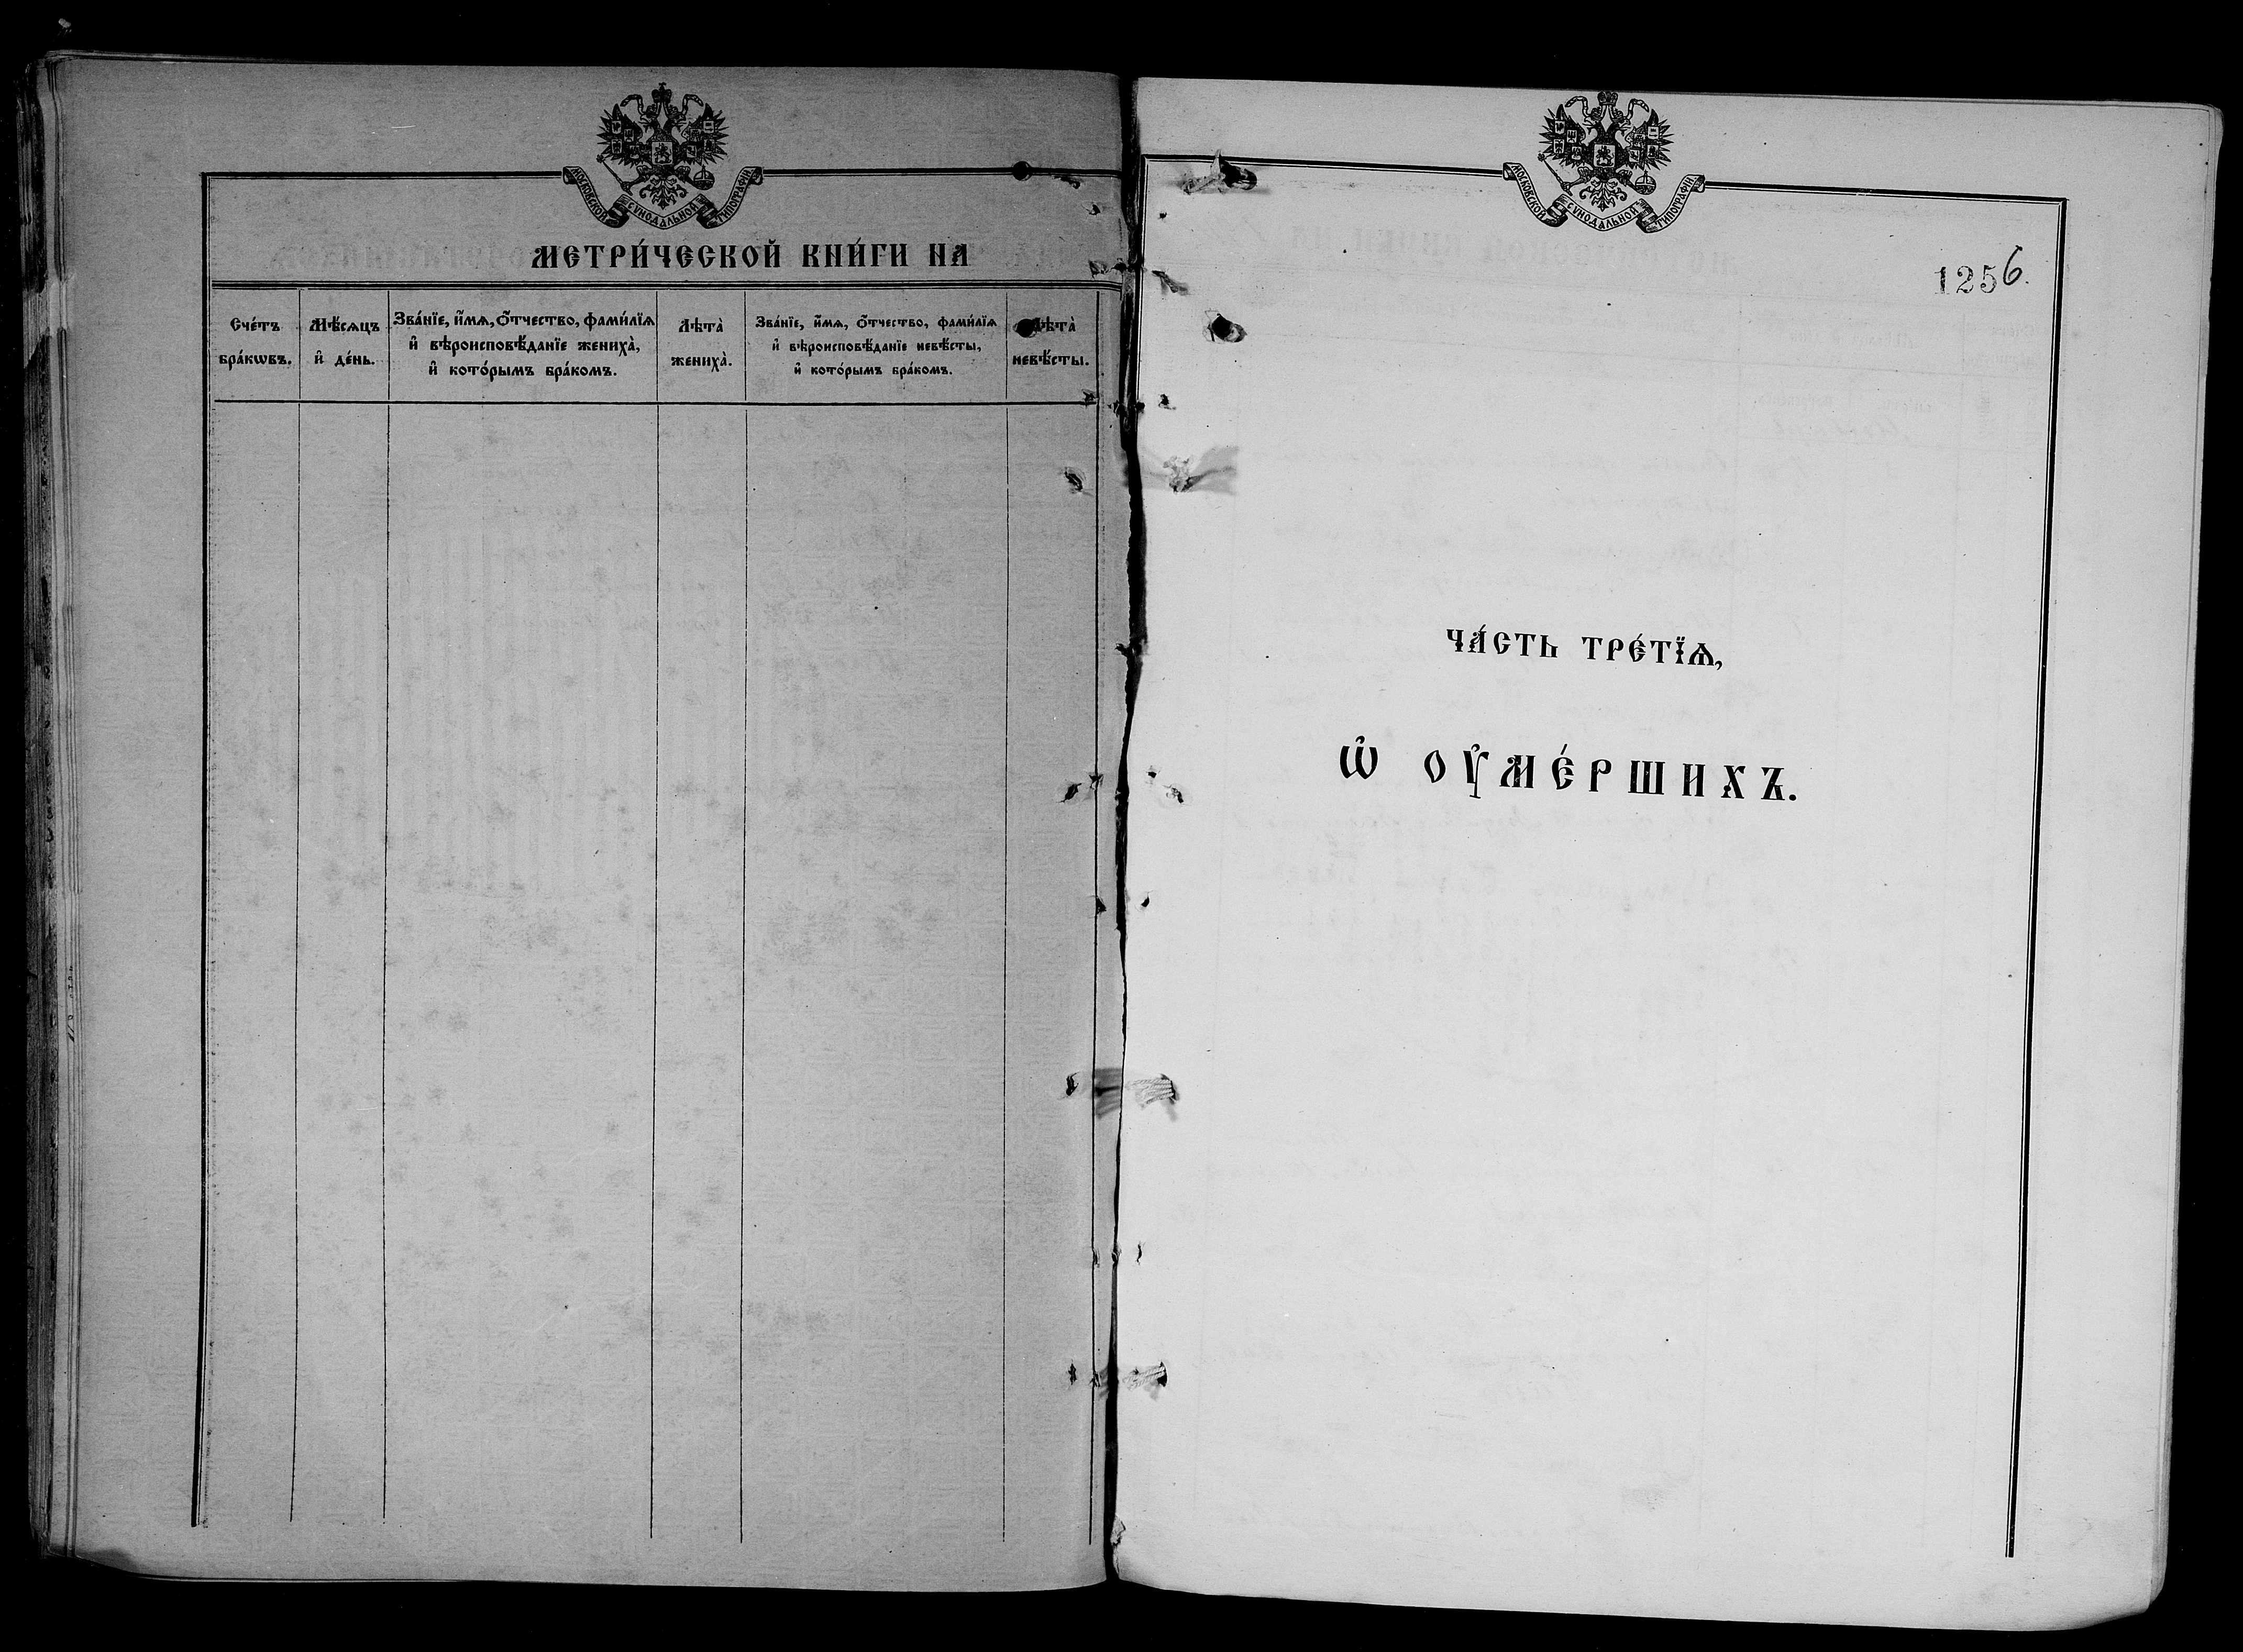 МОСКОВСКОЙ СѴНОДАЛЬНОЙ ТИПОГРАФІИ
МЕТРИ́ЧЕСКОЙ КНИ́ГИ НА
Сче́тъ
бра́кѡвъ.
Мѣ́сѧцъ
и҆ де́нь.
Зва́нїе, и҆́мѧ, ѻ҆́тчество, фами́лїѧ
и҆ вѣроисповѣ́данїе жениха̀,
и҆ кото́рымъ бра́комъ.
Лѣта̀
жениха̀.
Зва́нїе, и҆́мѧ, ѻ҆́тчество, фами́лїѧ
и҆ вѣроисповѣ́данїе невѣ́сты,
и҆ кото́рымъ бра́комъ.
Лѣта̀
невѣ́сты.
МОСКОВСКОЙ СѴНОДАЛЬНОЙ ТИПОГРАФІИ
1256.
ЧА́СТЬ ТРЕ́ТЇѦ,
Ѡ҆ ОУ҆МЕ́РШИХЪ.